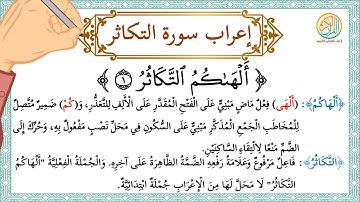 إعراب سورة التكاثر
﴿ أَلْهَىٰكُمُ ٱلتَّكَاثُرُ ١ ﴾
﴿أَلْهَاكُمُ﴾: (أَلْهَى) فِعْلٌ مَاضٍ مَبْنِيٌّ عَلَى الْفَتْحِ الْمُقَدَّرِ عَلَى الْأَلِفِ لِلتَّعَذُّرِ، وَ(كُمْ) ضَمِيرٌ مُتَّصِلٌ
لِلْمُخَاطَبِ الْجَمْعِ الْمُذَكَّرِ مَبْنِيٌّ عَلَى السُّكُونِ فِي مَحَلِّ نَصْبٍ مَفْعُولٌ بِهِ، وَحُرِّكَ إِلَى
الضَّمِّ مَنْعًا لِالْتِقَاءِ السَّاكِنَيْنِ.
﴿التَّكَاثُرُ﴾: فَاعِلٌ مَرْفُوعٌ وَعَلَامَةُ رَفْعِهِ الضَّمَّةُ الظَّاهِرَةُ عَلَى آخِرِهِ. وَالْجُمْلَةُ الْفِعْلِيَّةُ "أَلْهَاكُمُ
التَّكَاثُرُ" لَا مَحَلَّ لَهَا مِنَ الْإِعْرَابِ جُمْلَةٌ ابْتِدَائِيَّةٌ.